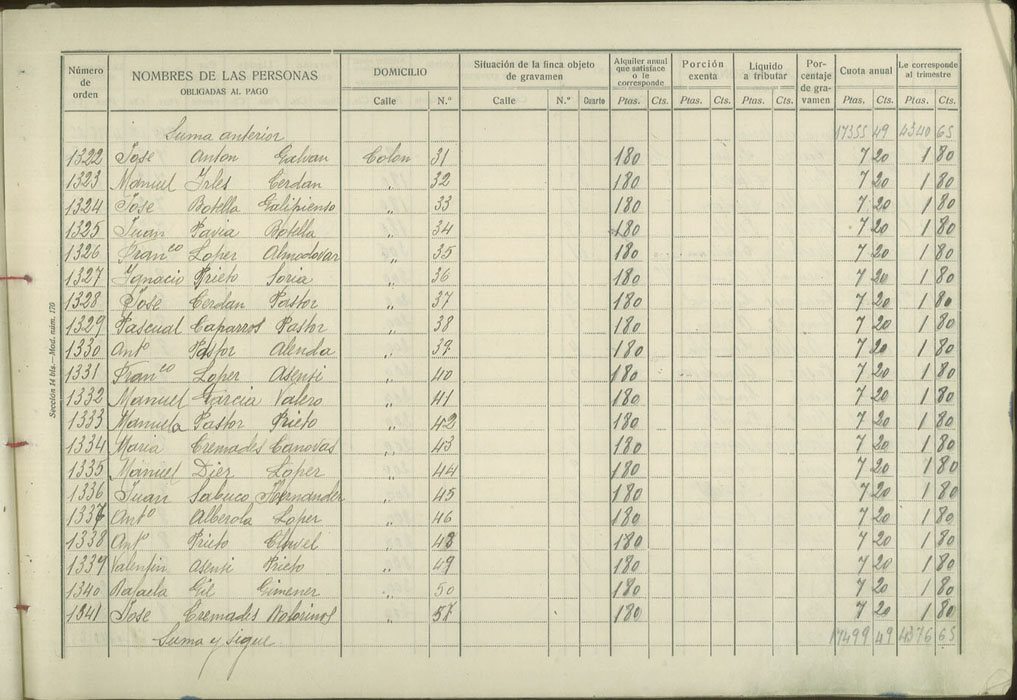 Número de orden | NOMBRES DE LAS PERSONAS OBLIGADAS AL PAGO | DOMICILIO | Situación de la finca objeto de gravamen | Alquiler anual que satisface o le corresponde | Porción exenta | Líquido a tributar | Por-centaje de gra-vamen | Cuota anual | Le corresponde al trimestre
Calle | N.º | Calle | N.º | Cuarto | Ptas. | Cts. | Ptas. | Cts. | Ptas. | Cts. | Ptas. | Cts. | Ptas. | Cts.
Suma anterior 17355 49 4340 65
1322 Jose Anton Galvan Colon 31 180 7 20 1 80
1323 Manuel Irles Cerdan " 32 180 7 20 1 80
1324 Jose Botella Galipienso " 33 180 7 20 1 80
1325 Juan Pavia Botella " 34 180 7 20 1 80
1326 Franco Lopez Almodovar " 35 180 7 20 1 80
1327 Ignacio Prieto Soria " 36 180 7 20 1 80
1328 Jose Cerdan Pastor " 37 180 7 20 1 80
1329 Pascual Caparros Pastor " 38 180 7 20 1 80
1330 Anto Pastor Alenda " 39 180 7 20 1 80
1331 Franco Lopez Asensi " 40 180 7 20 1 80
1332 Manuel Garcia Valero " 41 180 7 20 1 80
1333 Manuela Pastor Prieto " 42 180 7 20 1 80
1334 Maria Cremades Canovas " 43 180 7 20 1 80
1335 Manuel Diez Lopez " 44 180 7 20 1 80
1336 Juan Sabuco Hernandez " 45 180 7 20 1 80
1337 Anto Alberola Lopez " 46 180 7 20 1 80
1338 Anto Prieto " 48 180 7 20 1 80
1339 Valentin Asensi Prieto " 49 180 7 20 1 80
1340 Rafaela Gil Gimenez " 50 180 7 20 1 80
1341 Jose Cremades " 180 7 20 1 80
Suma y sigue 17499 49 4376 65
Sección 14 bis.—Mod. núm. 170